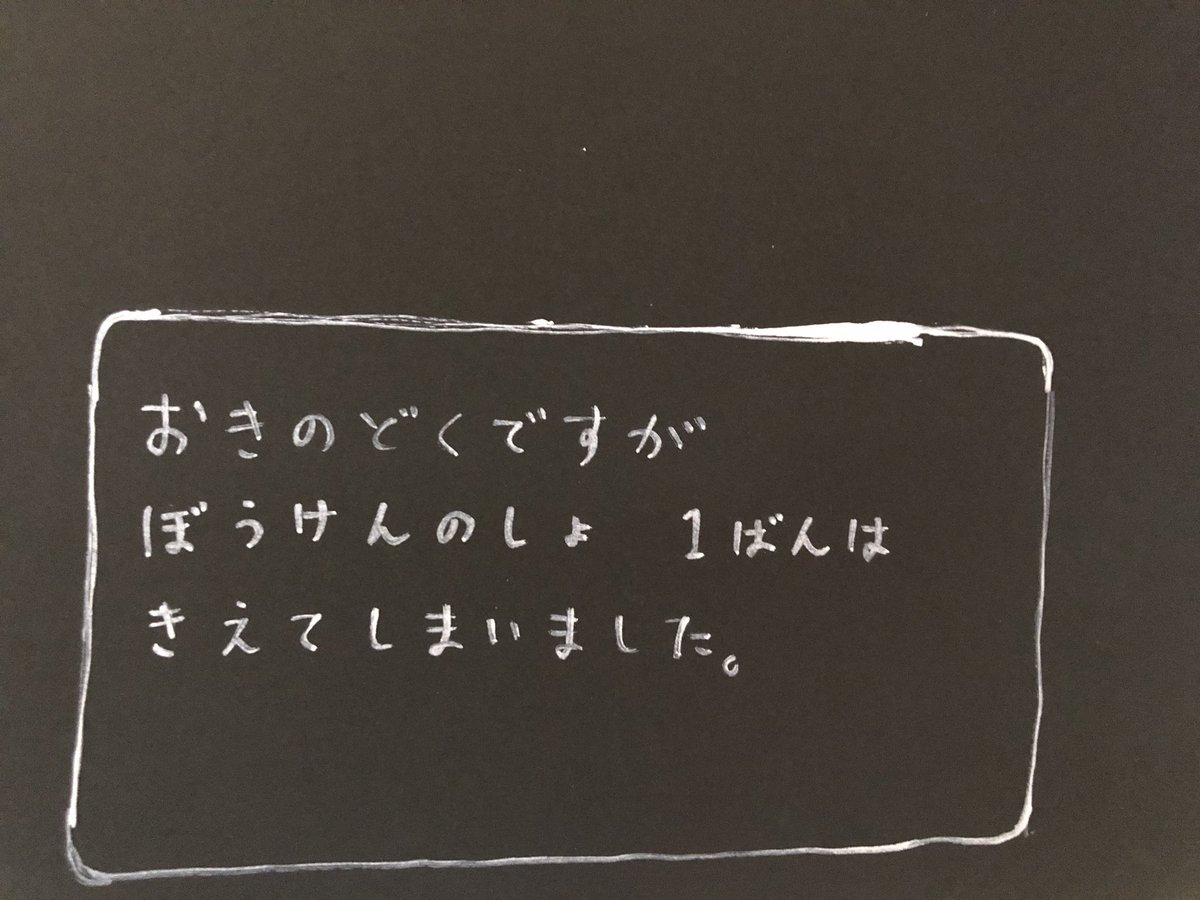 おきのどくですが
ぼうけんのしょ　1ばんは
きえてしまいました。